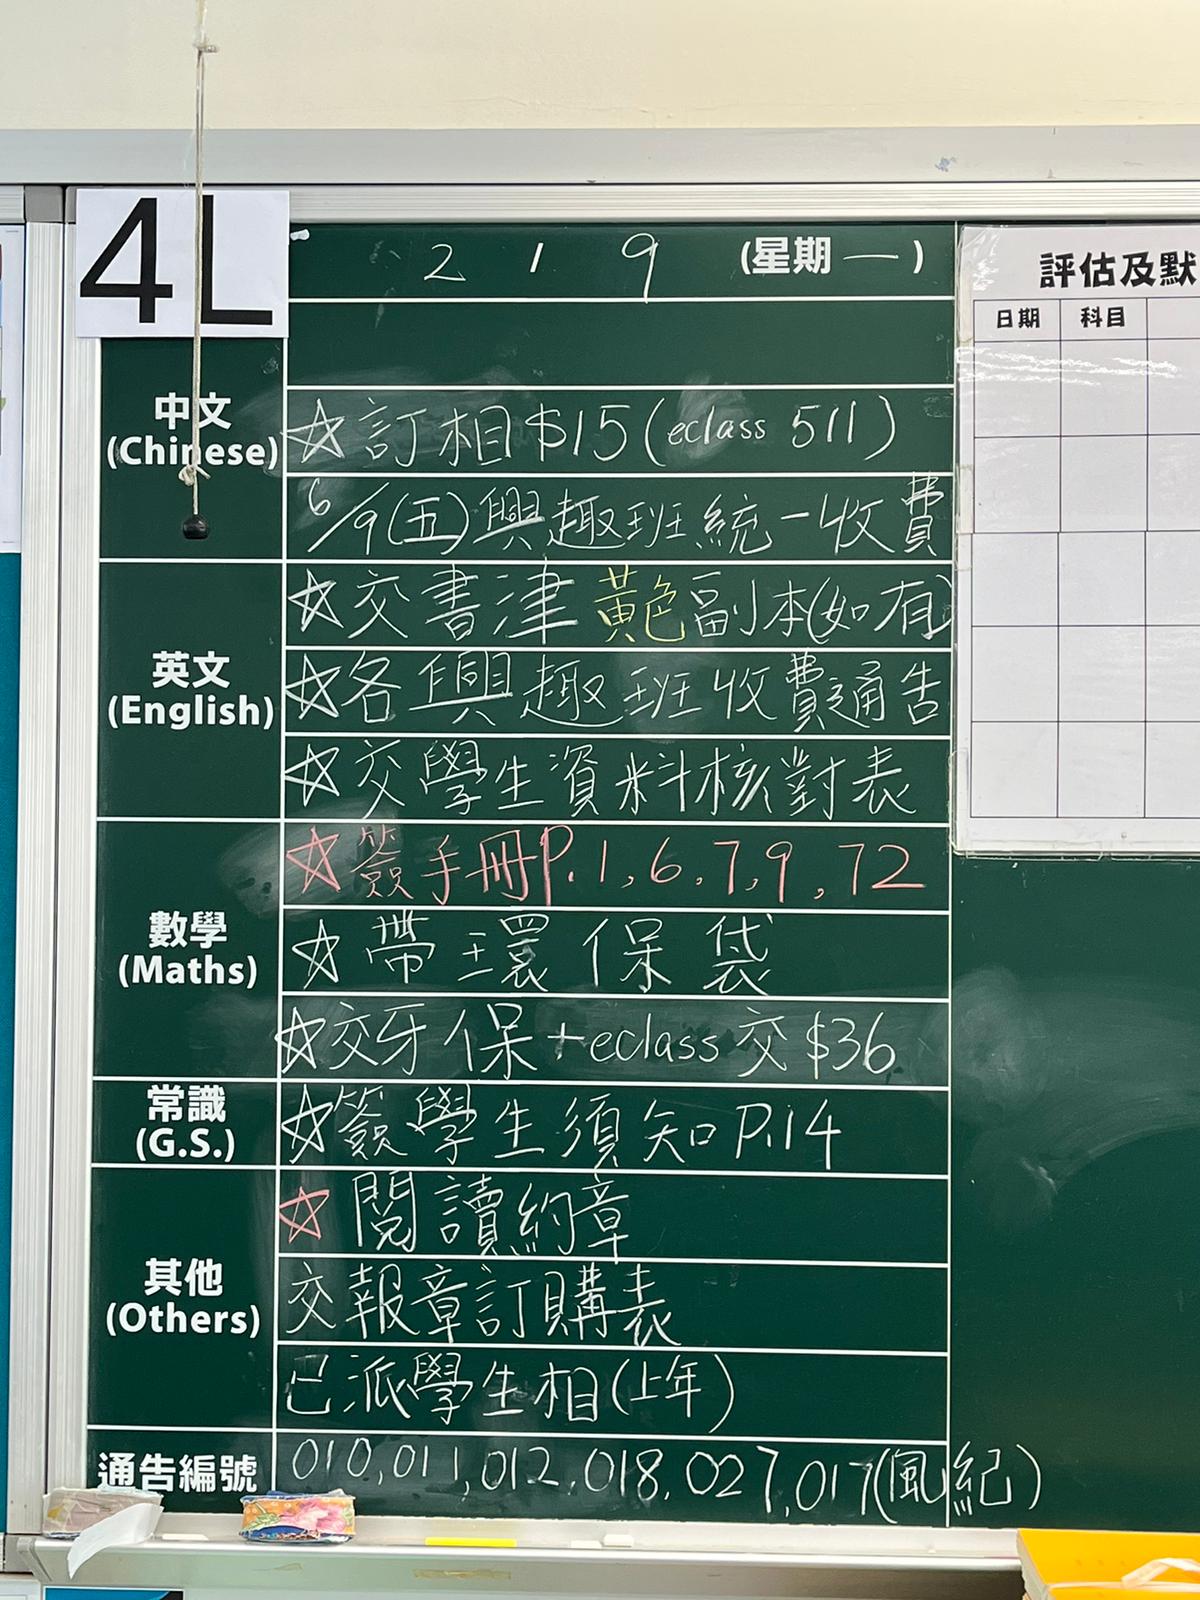 4L
2 / 9 (星期一)
評估及默
日期 科目
中文
(Chinese)
☆訂相$15(eclass 511)
6/9(五)興趣班統一收費
英文
(English)
☆交書津黃色副本(如有)
☆各興趣班收費通告
☆交學生資料核對表
數學
(Maths)
☆簽手冊P.1,6,7,9,72
☆帶環保袋
☆交牙保+eclass交$36
常識
(G.S.)
☆簽學生須知P.14
其他
(Others)
☆閱讀約章
交報章訂購表
已派學生相(上年)
通告編號
010,011,012,018,027,017(風紀)